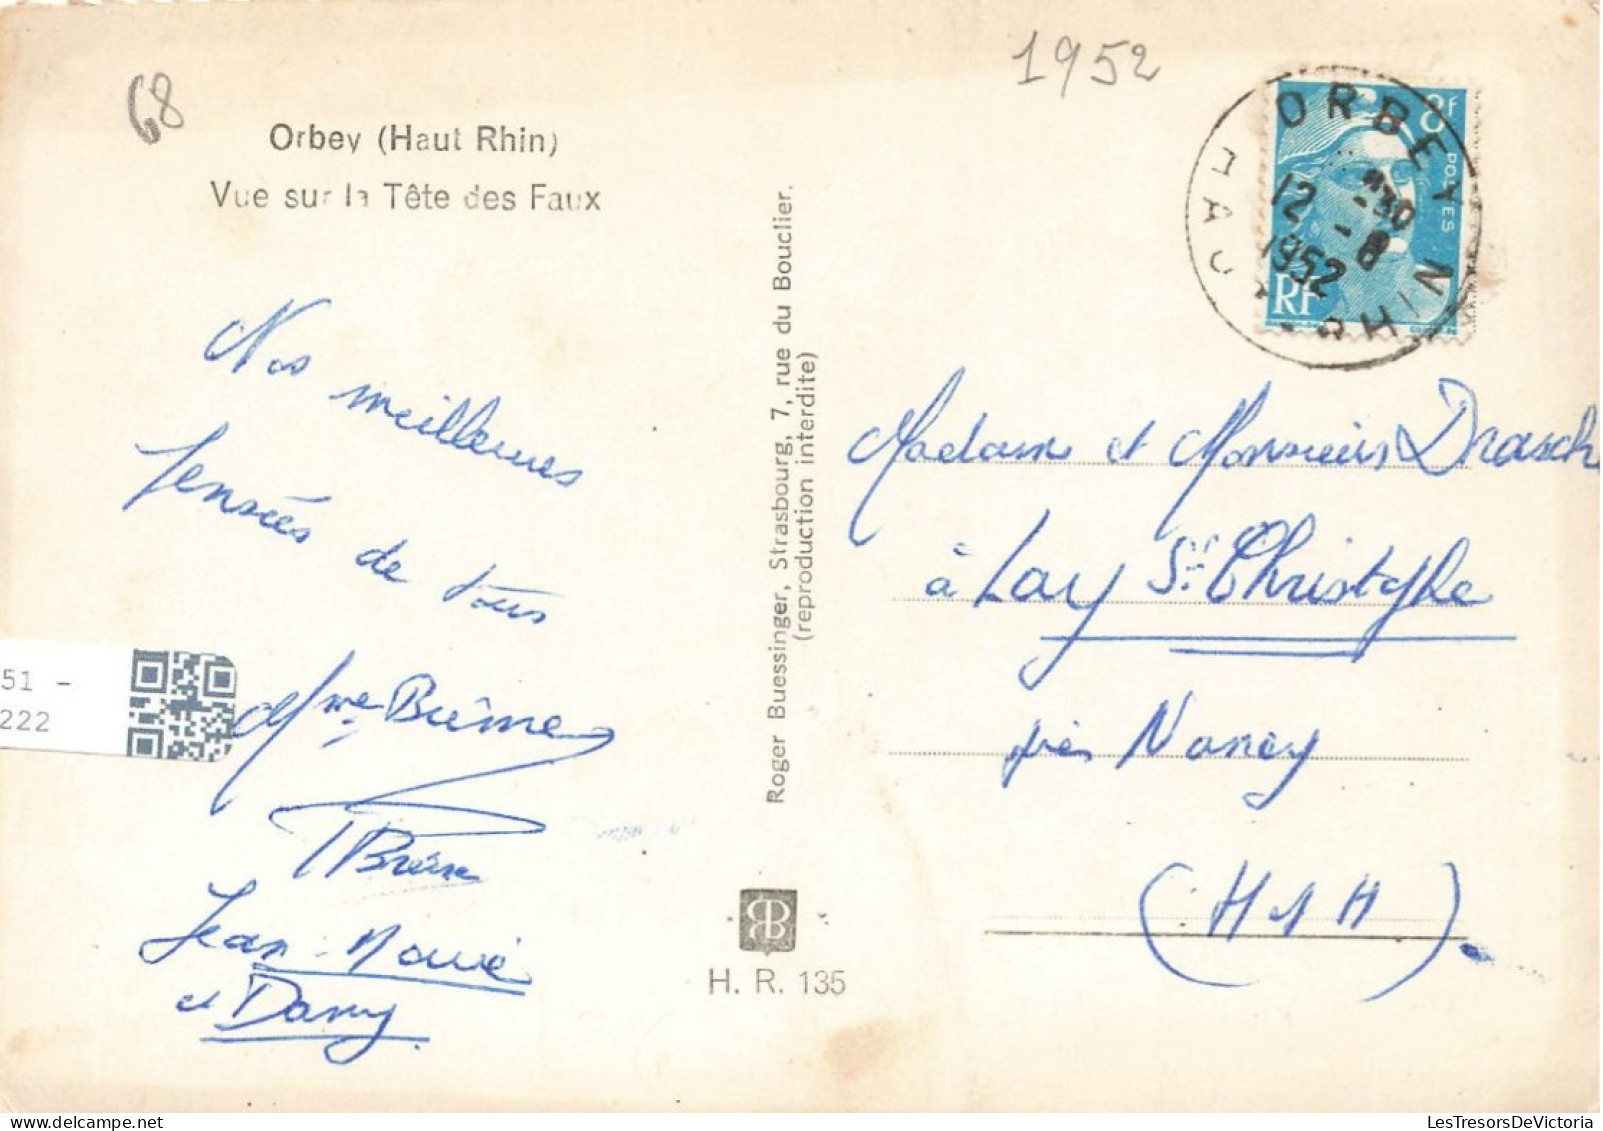 68
1952
Orbey (Haut Rhin)
Vue sur la Tête des Faux
Nos meilleures
pensées de tous
Mme
Jean-Marie
et Dany
51 -
222
Roger Buessinger, Strasbourg, 7, rue du Bouclier.
(reproduction interdite)
H. R. 135
ORBEY
HAUT-RHIN
12 -30
1952 -8
8F
POSTES
RF
Madame et Monsieur Drasch
à Lay St. Christophe
près Nancy
(M & M)
LesTresorsDeVictoria - delcampe.net